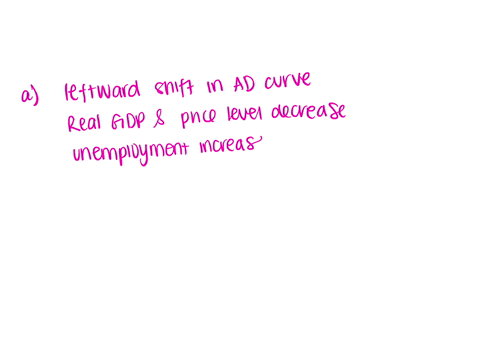 a) leftward shift in AD curve
Real GDP & price level decrease
unemployment increas